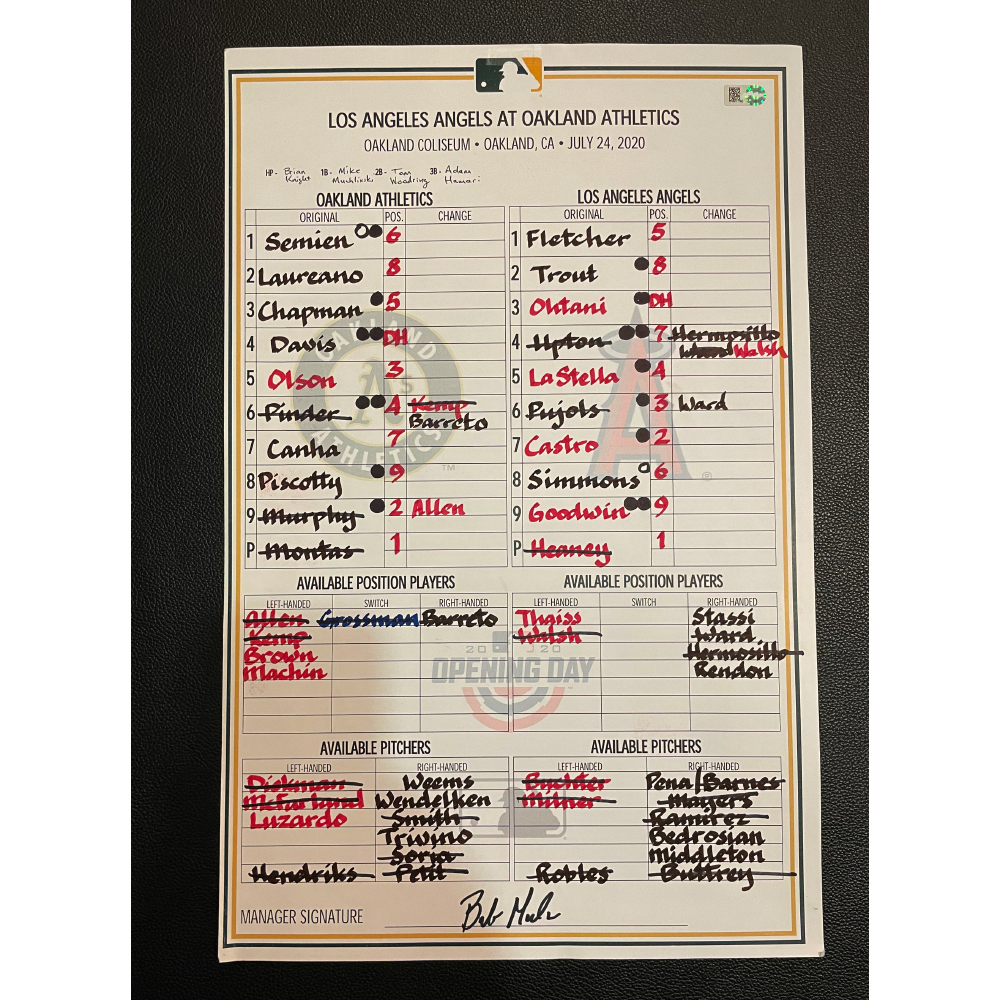 LOS ANGELES ANGELS AT OAKLAND ATHLETICS
OAKLAND COLISEUM • OAKLAND, CA • JULY 24, 2020
HP- Brian Knight 1B- Mike Muchlinski 2B- Tom Woodring 3B- Adam Hamari
OAKLAND ATHLETICS
ORIGINAL POS. CHANGE
1 Semien 6
2 Laureano 8
3 Chapman 5
4 Davis DH
5 Olson 3
6 Pinder 4 Kemp
Barreto
7 Canha 7
8 Piscotty 9
9 Murphy 2 Allen
P Montas 1
LOS ANGELES ANGELS
ORIGINAL POS. CHANGE
1 Fletcher 5
2 Trout 8
3 Ohtani DH
4 Upton 7 Hermosillo
Ward Walsh
5 LaStella 4
6 Pujols 3 Ward
7 Castro 2
8 Simmons 6
9 Goodwin 9
P Heaney 1
AVAILABLE POSITION PLAYERS
LEFT-HANDED SWITCH RIGHT-HANDED
Allen Grossman Barreto
Kemp
Brown
Machin
AVAILABLE POSITION PLAYERS
LEFT-HANDED SWITCH RIGHT-HANDED
Thaiss Stassi
Walsh Ward
Hermosillo
Rendon
OAKLAND ATHLETICS
A's
TM
A
®
2020
OPENING DAY
AVAILABLE PITCHERS
LEFT-HANDED RIGHT-HANDED
Diekman Weems
McFarland Wendelken
Luzardo Smith
Trivino
Soria
Hendriks Petit
AVAILABLE PITCHERS
LEFT-HANDED RIGHT-HANDED
Buchter Pena/Barnes
Milner Mayers
Ramirez
Bedrosian
Middleton
Robles Buttrey
MANAGER SIGNATURE Bob Mel